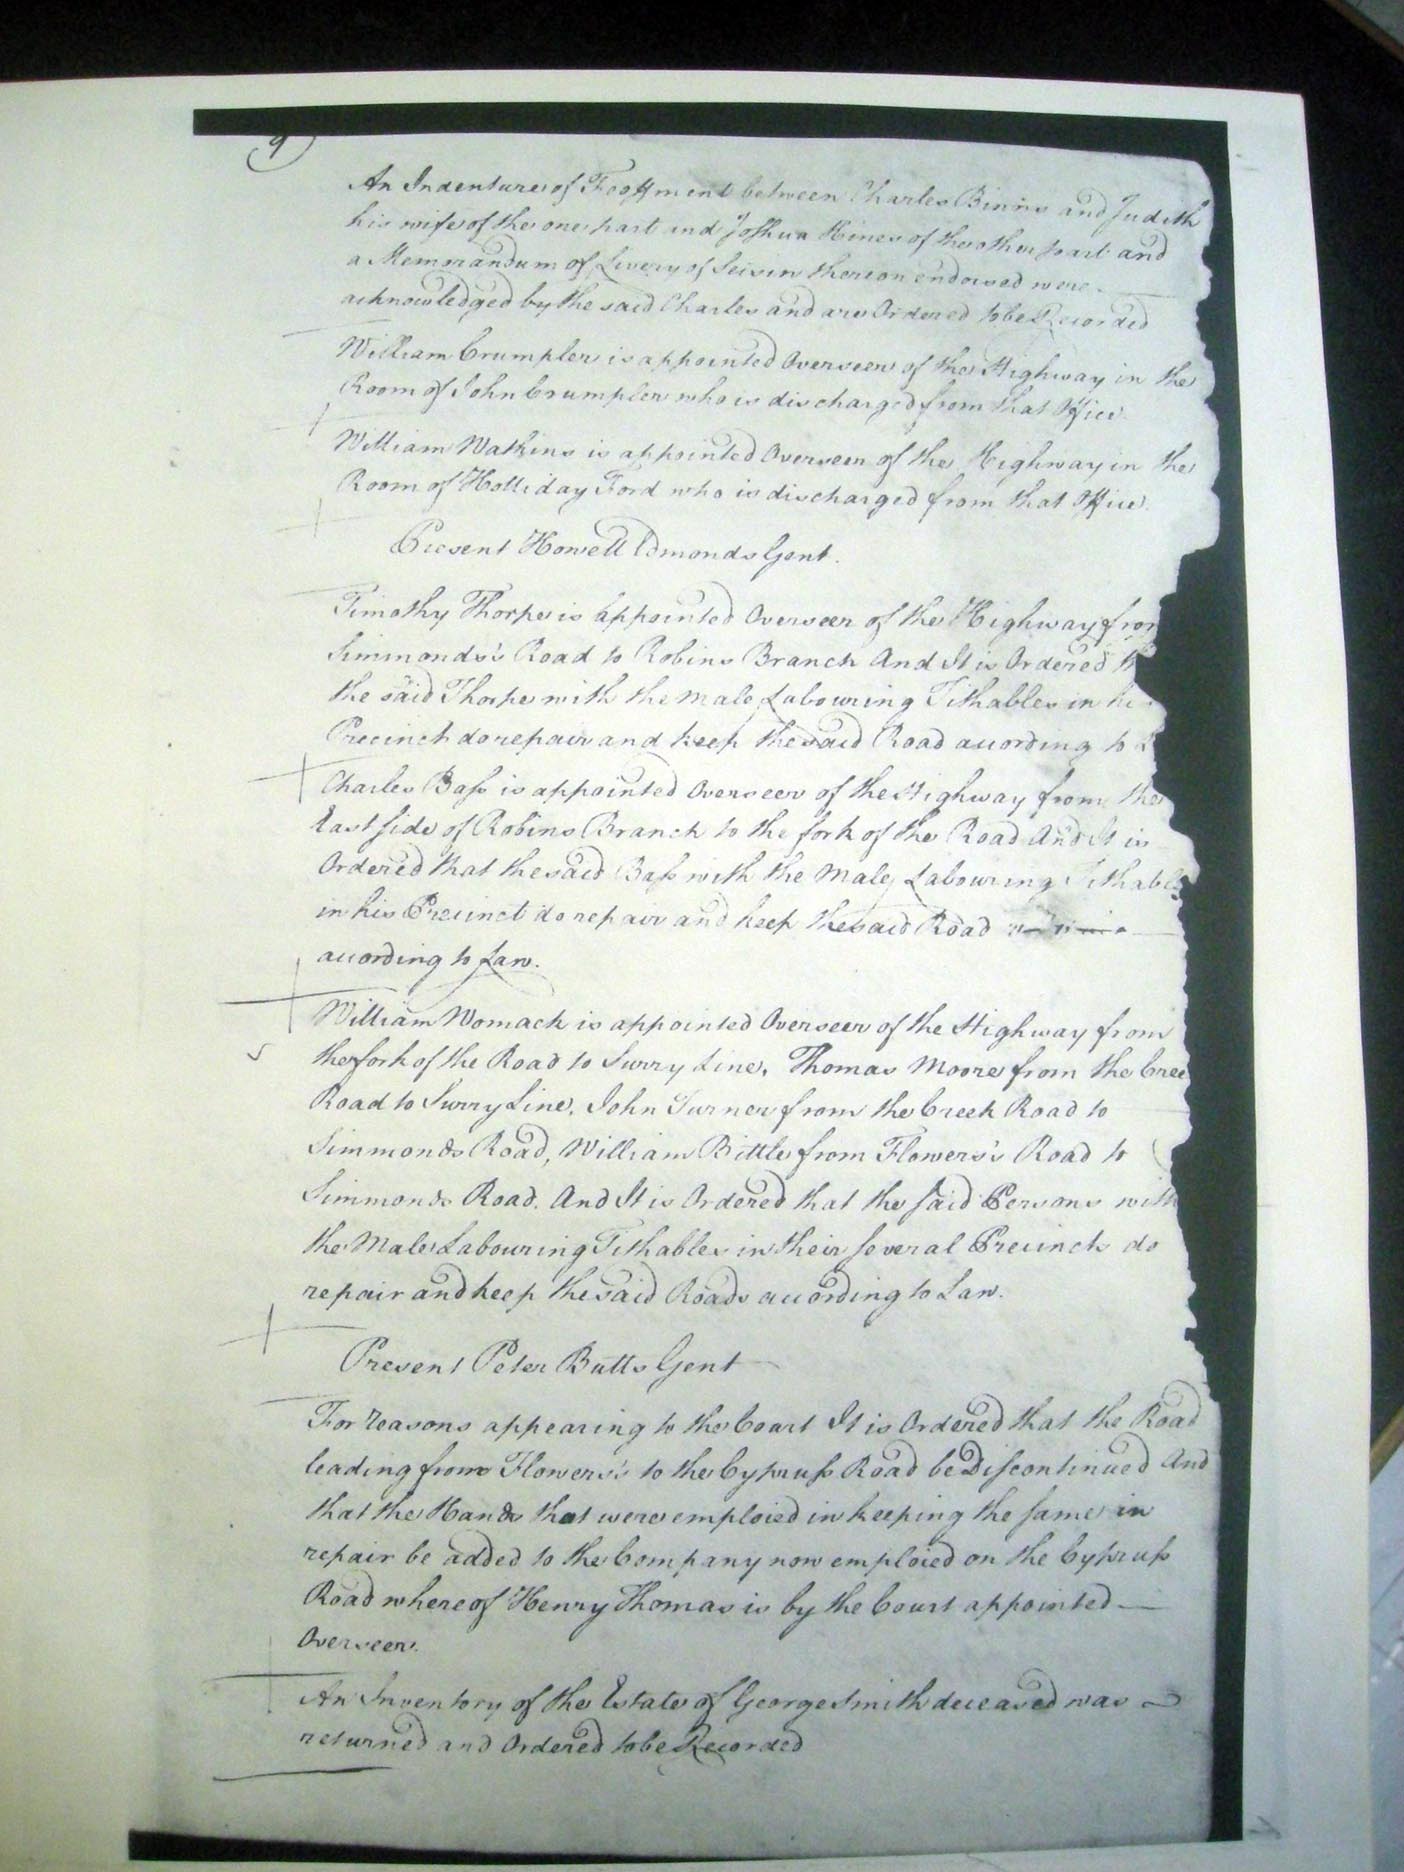 9
An Indenture of Feoffment between Charles Binns and Judith
his wife of the one part and Joshua Hines of the other part and
a Memorandum of Livery of Seisin thereon endorsed were
acknowledged by the said Charles and are Ordered to be Recorded
William Crumpler is appointed Overseer of the Highway in the
Room of John Crumpler who is discharged from that Office
William Watkins is appointed Overseer of the Highway in the
Room of Holliday Ford who is discharged from that Office.
Present Howell Edmonds Gent.
Timothy Thorpe is appointed Overseer of the Highway from
Simmonds's Road to Robins Branch And It is Ordered th
the said Thorpe with the male Labouring Tithables in his
Precinct do repair and keep the said Road according to L
Charles Bass is appointed Overseer of the Highway from the
East side of Robins Branch to the fork of the Road And It is
Ordered that the said Bass with the Male Labouring Tithables
in his Precinct do repair and keep the said Road
according to Law.
William Womack is appointed Overseer of the Highway from
the fork of the Road to Surry Line, Thomas Moore from the Cree
Road to Surry Line, John Turner from the Creek Road to
Simmonds Road, William Bittle from Flowers's Road to
Simmonds Road. And It is Ordered that the said Persons with
the Male Labouring Tithables in their several Precincts do
repair and keep the said Roads according to Law.
Present Peter Butts Gent
For reasons appearing to the Court It is Ordered that the Road
leading from Flowers's to the Cypruss Road be Discontinued And
that the Hands that were emploied in keeping the same in
repair be added to the Company now emploied on the Cypruss
Road whereof Henry Thomas is by the Court appointed
Overseer.
An Inventory of the Estate of George Smith deceased was
returned and Ordered to be Recorded